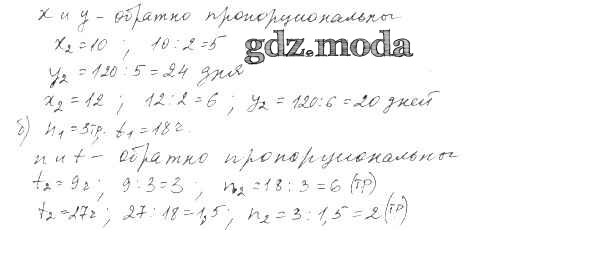 x и y - обратно пропорциональны
x₂=10 ; 10:2=5
gdz.moda
y₂=120:5=24 дня
x₂=12 ; 12:2=6 ; y₂=120:6=20 дней
б) n₁=3тр; t₁=18ч.
n и t - обратно пропорциональны
t₂=9ч; 9:3=3 ; n₂=18:3=6 (тр)
t₂=27ч; 27:18=1,5; n₂=3:1,5=2 (тр)